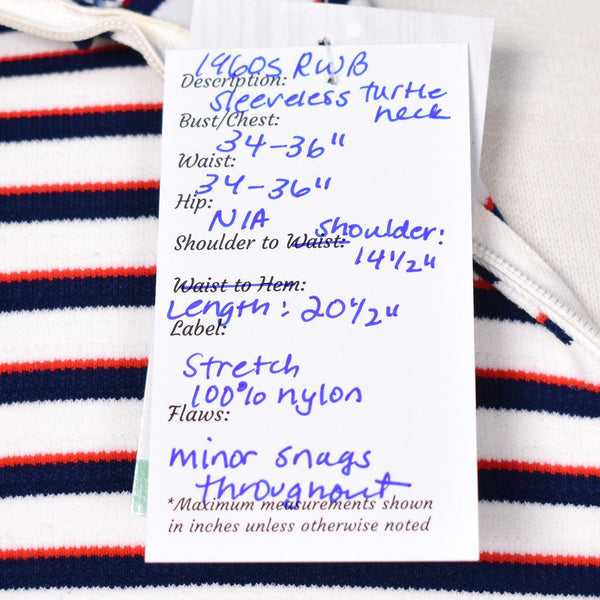 1960s RWB
Description:
sleeveless turtle
neck
Bust/Chest:
34-36"
Waist:
34-36"
Hip:
N/A
Shoulder to Waist: shoulder:
14 1/2"
Waist to Hem:
Length: 20 1/2"
Label:
Stretch
100% nylon
Flaws:
minor snags
throughout
*Maximum measurements shown
in inches unless otherwise noted